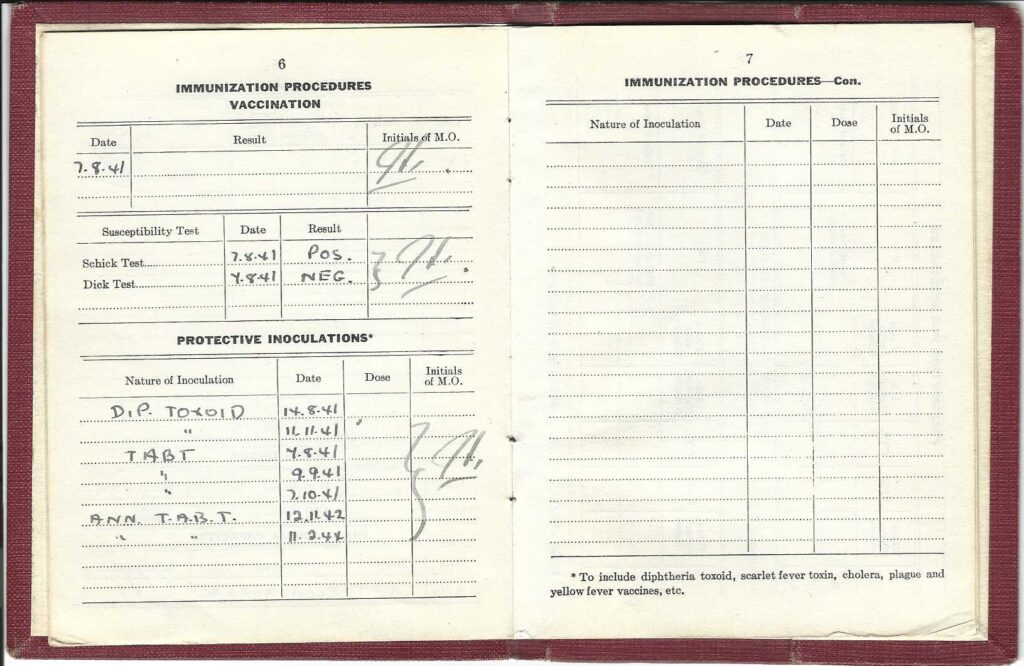 6
IMMUNIZATION PROCEDURES
VACCINATION
Date Result Initials of M.O.
7.8.41
Susceptibility Test Date Result
Schick Test 7.8.41 POS.
Dick Test 7.8.41 NEG.
PROTECTIVE INOCULATIONS*
Nature of Inoculation Date Dose Initials of M.O.
DIP. TOXOID 14.8.41
" 11.11.41
TABT 7.8.41
" 9.9.41
" 7.10.41
ANN. T.A.B.T. 12.11.42
" " 11.2.44
7
IMMUNIZATION PROCEDURES—Con.
Nature of Inoculation Date Dose Initials of M.O.
* To include diphtheria toxoid, scarlet fever toxin, cholera, plague and
yellow fever vaccines, etc.